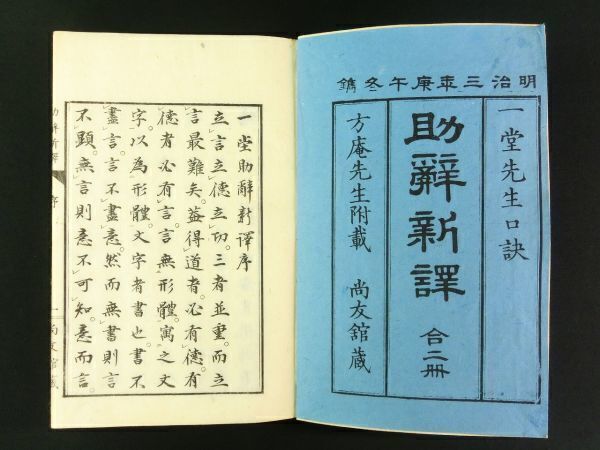 明治三年庚午冬鐫
一堂先生口訣
助辭新譯 合二冊
方庵先生附載 尚友館藏
一堂助辭新譯序
立言立德立功。三者並重。而立
言最難矣。蓋得道者。必有德。有
德者必有言。言無形體。寓之文
字。以為形體。文字者書也。書不
盡言。言不盡意。然而無書則言
不顯。無言則意不可知。意而言。
助辭新譯 序 一 尚友館藏